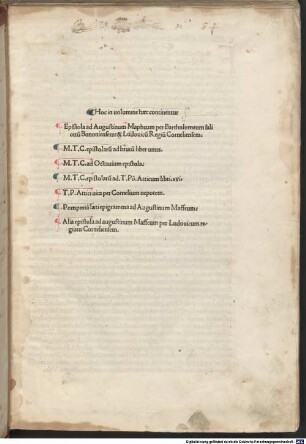 Hoc in uolumine hæc continentur
Epistola ad Augustinum Mapheum per Bartholomeum sali
cetũ Bononiensem & Ludouicũ Regiũ Corneliensem.
M.T.C. epistolarũ ad brutũ liber unus.
M.T.C. ad Octauium epistola.
M.T.C. epistolarũ ad.T.Põ. Atticum libri.xvi.
T.P. Attici uita per Cornelium nepotem.
Pomponii læti epigramma ad Augustinum Maffeum.
Alia epistola ad augustinum Maffeum per Ludouicum re
gium Corneliensem.